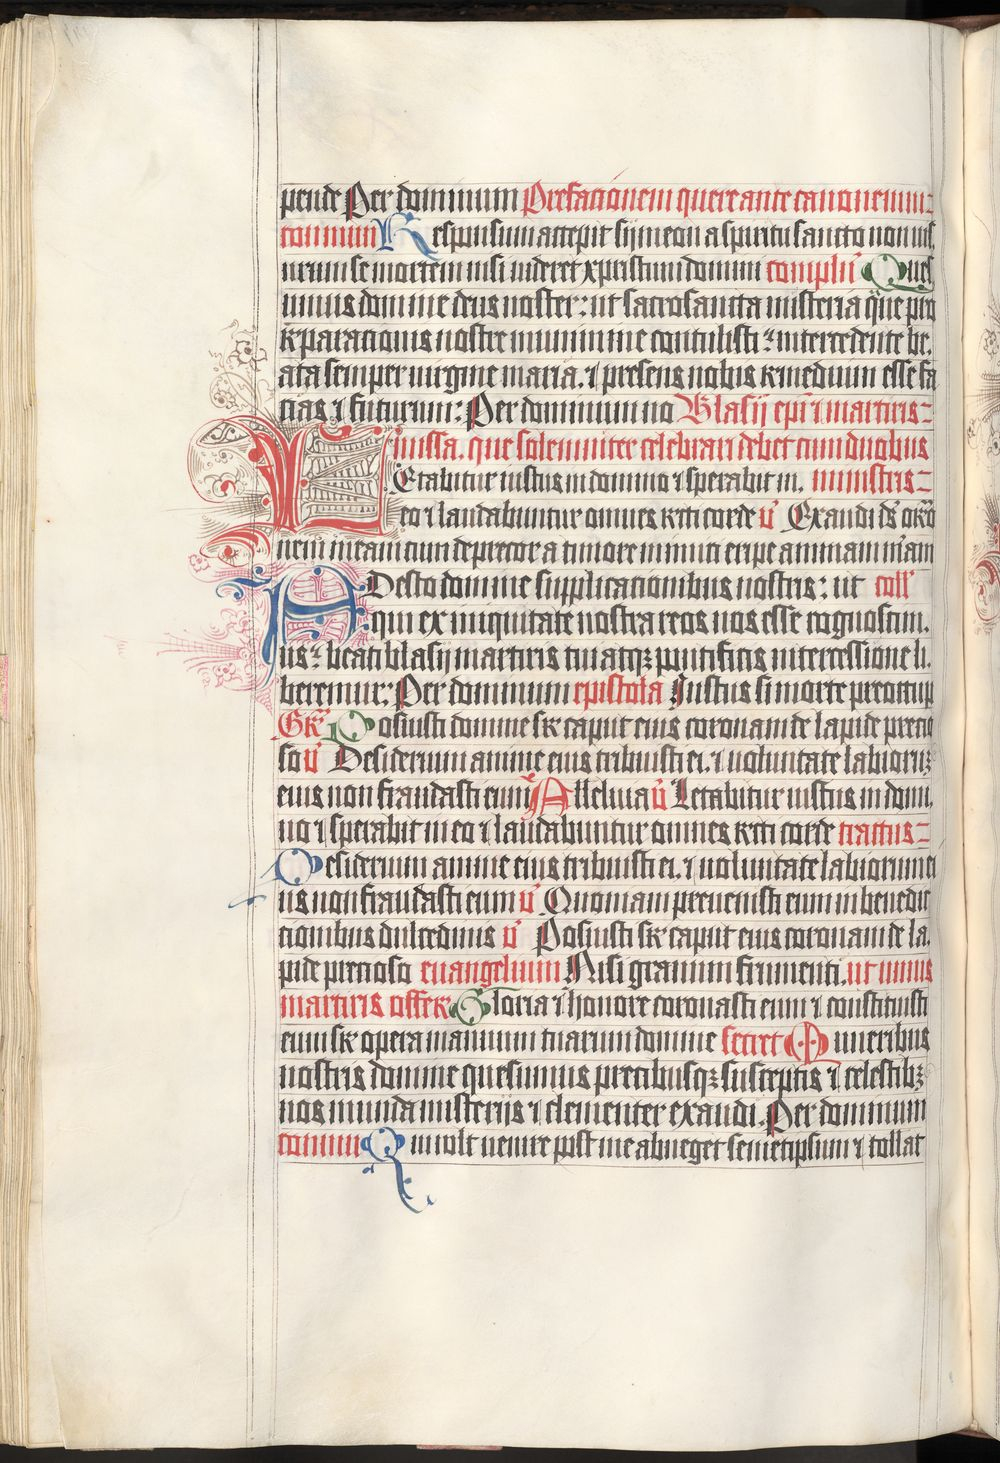 pende Per dominum Prefacionem quere ante canonem:
commun Responsum accepit symeon a spiritu sancto non vis
urum se mortem nisi videret xpristum domini complen̄ Ques
umus domine deus noster: ut sacrosancta misteria que pro
reparacionis nostre munimine contulisti: intercedente be.
ata semper virgine maria. ⁊ presens nobis remedium esse fa
cias ⁊ futurum: Per dominum no Blasij epī ⁊ martiris:
missa. que solemniter celebrari debet cum duobus
LEtabitur iustus in domino ⁊ sperabit in. ministris:
eo ⁊ laudabuntur omnes recti corde v̄ Exaudi d̄s orō
nem meam cum deprecor a timore inimici eripe animam m̄am
ADesto domine supplicacionibus nostris: ut coll̄
qui ex iniquitate nostra reos nos esse cognoscim.
us: beati blasij martiris tui atqꝫ pontificis intercessione li.
beremur: Per dominum epistola Iustus si morte preoccup
Gr̄ Posuisti domine sr̄ caput eius coronam de lapide precio
so v̄ Desiderium anime eius tribuisti ei. ⁊ voluntate labiorꝫ
eius non fraudasti eum Alleluia v̄ Letabitur iustus in domi.
no ⁊ sperabit in eo ⁊ laudabuntur omnes recti corde tractus:
Desiderium anime eius tribuisti ei. ⁊ voluntate labiorum ei
us non fraudasti eum v̄ Quoniam prevenisti eum in benedic
tionibus dulcedinis v̄ Posuisti sr̄ caput eius coronam de la.
pide precioso euangelium Nisi granum frumenti. ut unius
martiris offer̄ Gloria ⁊ honore coronasti eum ⁊ constituisti
eum sr̄ opera manuum tuarum domine secret Muneribus
nostris domine quesumus precibusqꝫ susceptis ⁊ celestibꝫ
nos munda misterijs ⁊ clementer exaudi. Per dominum
commu Qui volt venire post me abneget semetipsum ⁊ tollat